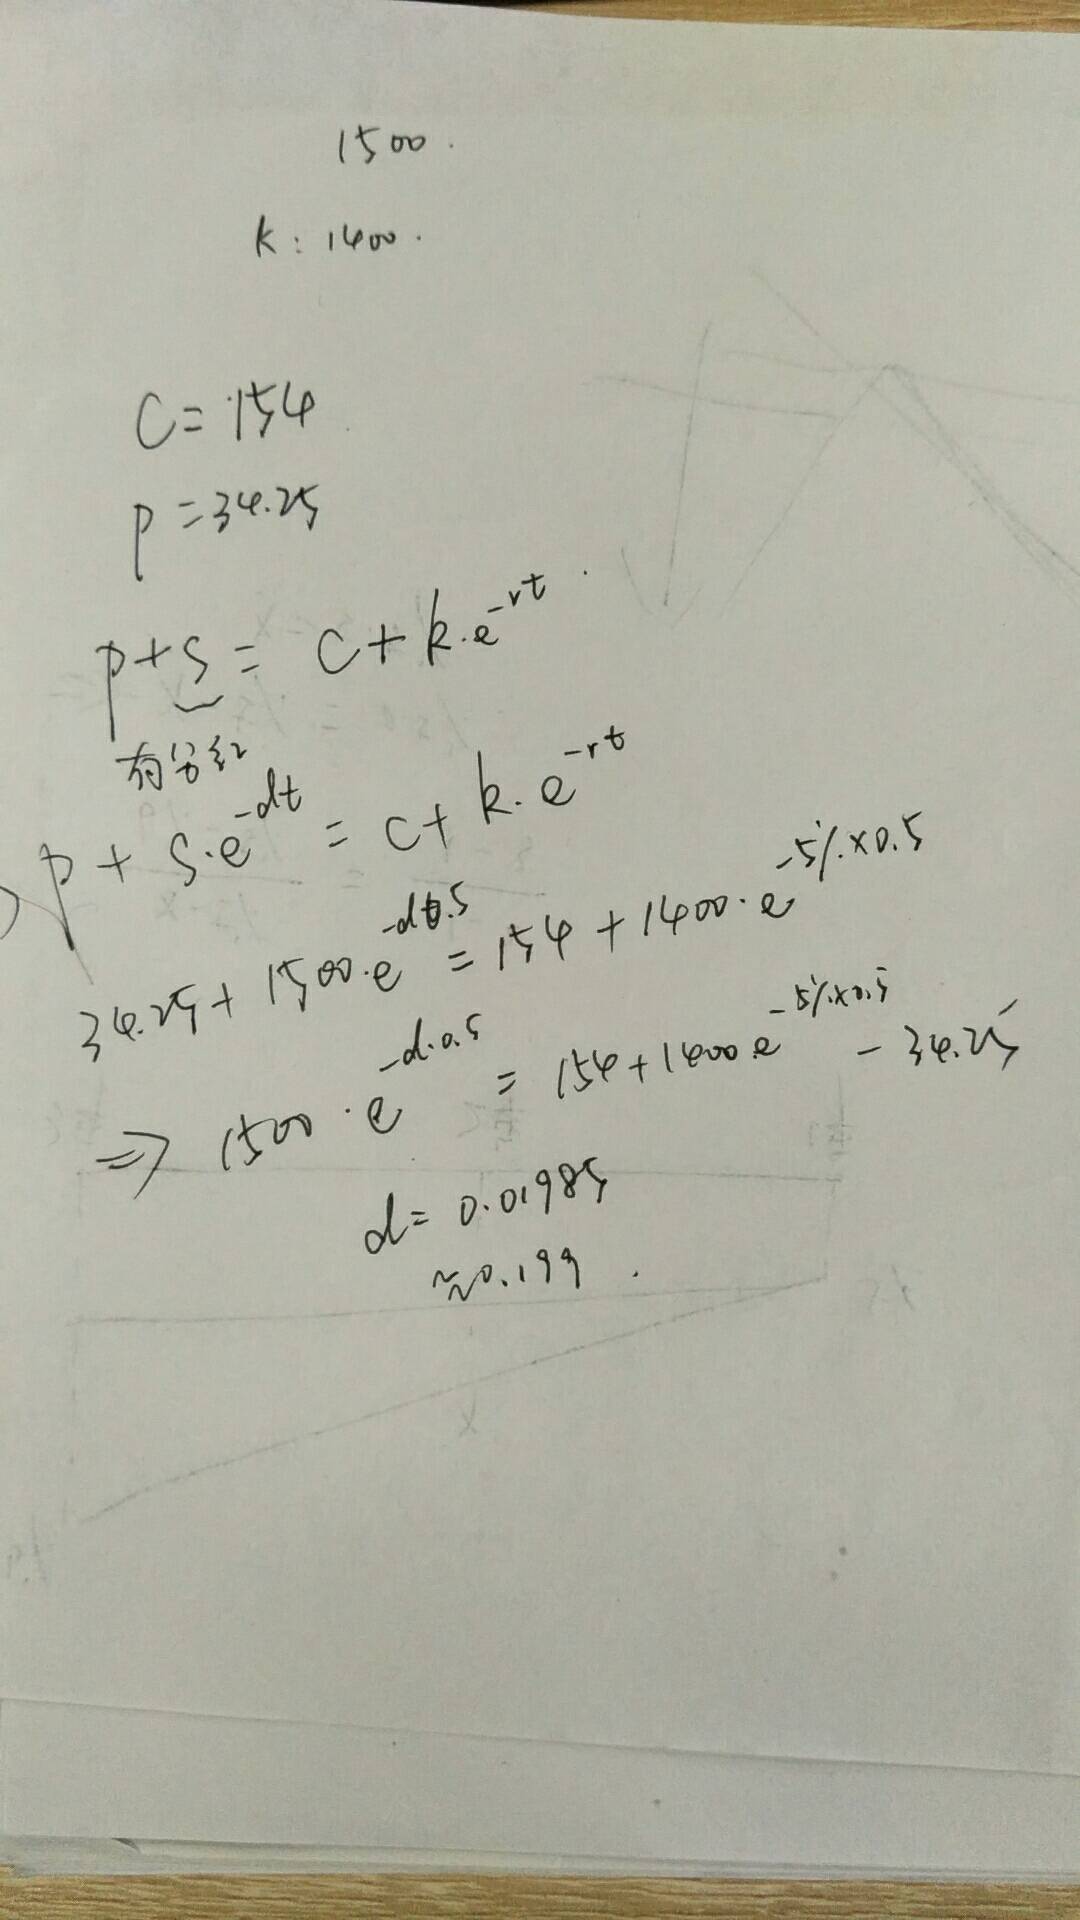 1500.
k: 1400.
C= 154
P=34.25
p+S = C+k·e^-rt
有分红
p + S·e^-dt = C+ k·e^-rt
34.25+ 1500·e^-d0.5 = 154 + 1400·e^-5%×0.5
=> 1500·e^-d·0.5 = 154+1400·e^-5%×0.5 - 34.25
d= 0.01985
≈0.199.